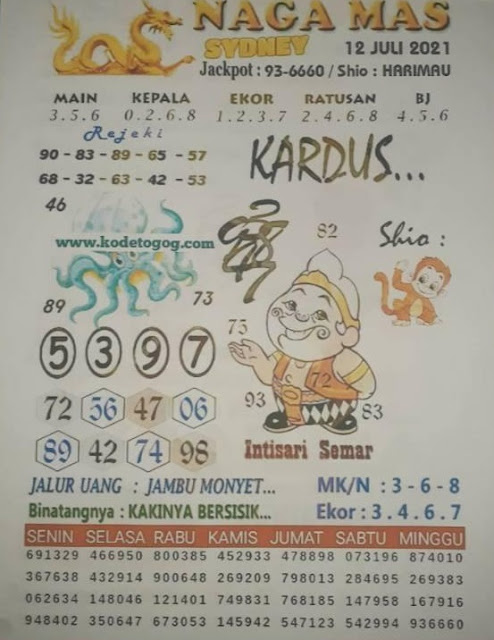 NAGA MAS
SYDNEY
12 JULI 2021
Jackpot : 93-6660 / Shio : HARIMAU
MAIN KEPALA EKOR RATUSAN BJ
3.5.6 0.2.6.8 1.2.3.7 2.4.6.8 4.5.6
Rejeki
90 - 83 - 89 - 65 - 57
68 - 32 - 63 - 42 - 53
KARDUS...
46
82
Shio :
www.kodetogog.com
89
73
75
5 3 9 7
72
72 56 47 06
93
83
89 42 74 98
Intisari Semar
JALUR UANG : JAMBU MONYET...
MK/N : 3 - 6 - 8
Binatangnya : KAKINYA BERSISIK...
Ekor : 3.4.6.7
SENIN SELASA RABU KAMIS JUMAT SABTU MINGGU
691329 466950 800385 452933 478898 073196 874010
367638 432914 900648 269209 798013 284695 269383
062634 148046 121401 749831 768185 147958 167916
948402 350647 673053 145942 547123 542994 936660